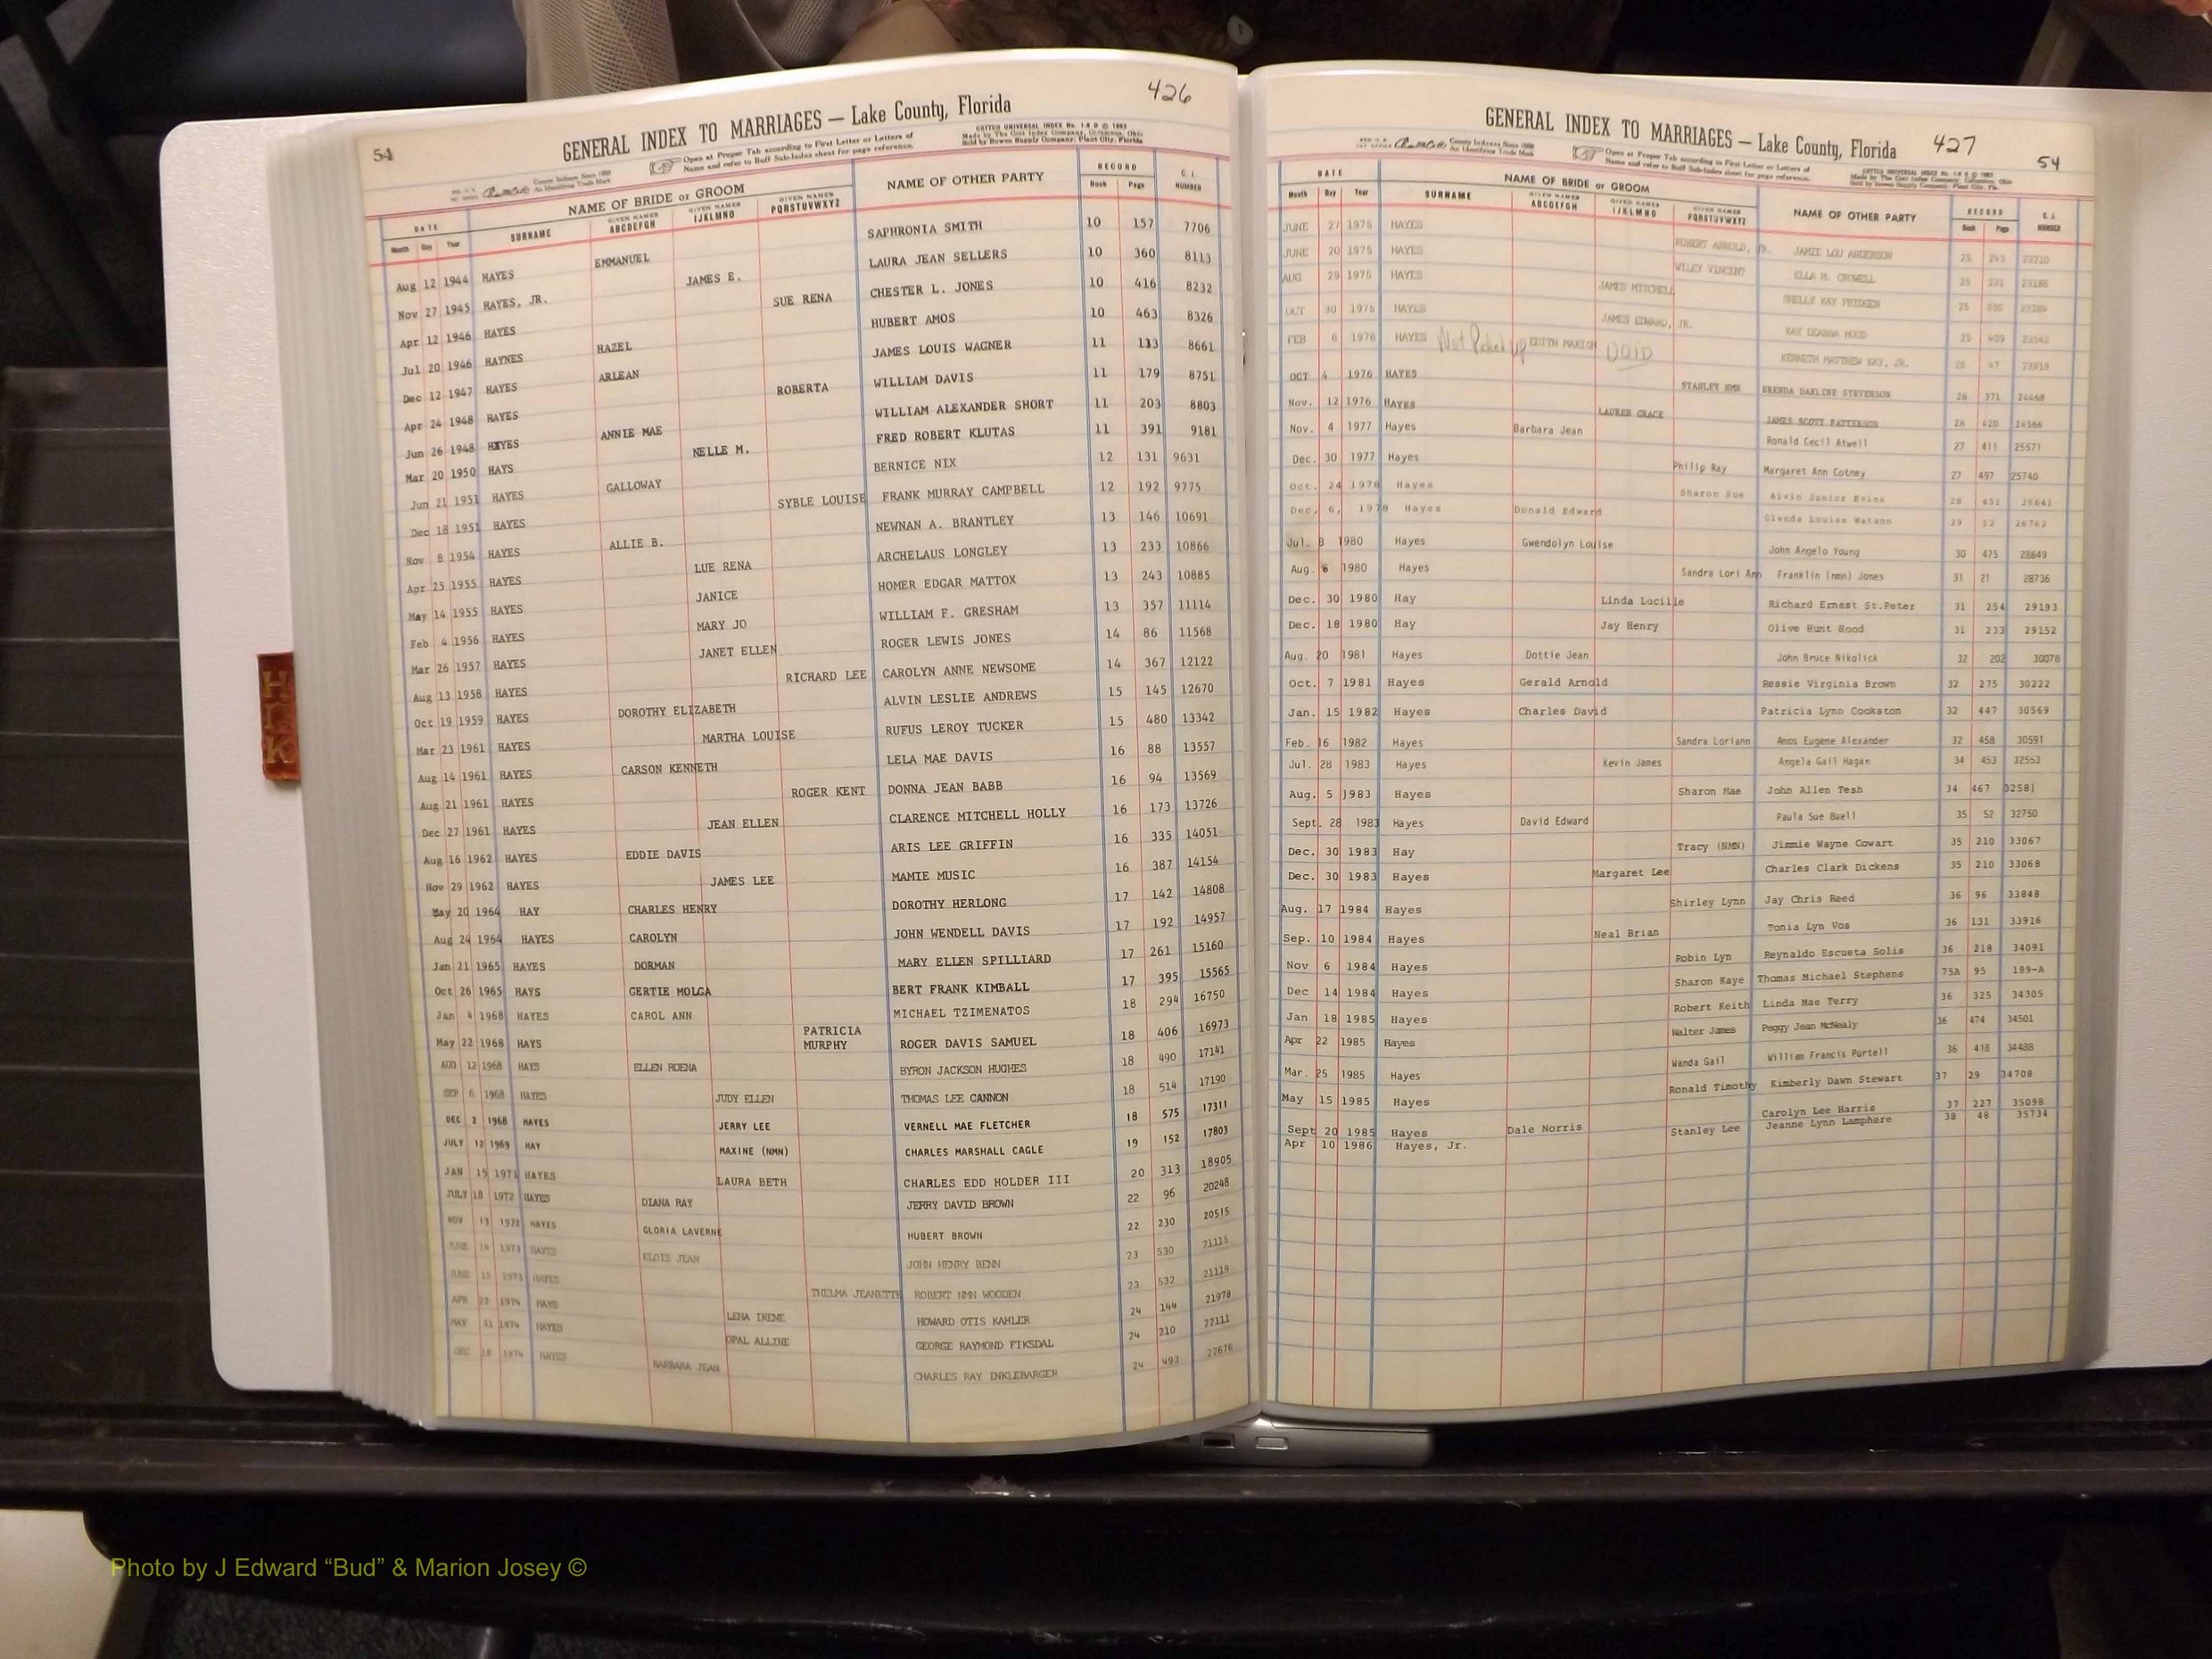 54
426
GENERAL INDEX TO MARRIAGES — Lake County, Florida
County Indexes Since 1888
An Identifying Trade Mark
Open at Proper Tab according to First Letter or Letters of
Name and refer to Buff Sub-Index sheet for page reference.
COTTCO UNIVERSAL INDEX No. 1-8 D © 1963
Made by The Cott Index Company, Columbus, Ohio
Sold by Bowen Supply Company, Plant City, Florida
DATE NAME OF BRIDE or GROOM NAME OF OTHER PARTY RECORD G. I. NUMBER
Month Day Year SURNAME GIVEN NAMES ABCDEFGH GIVEN NAMES IJKLMNO GIVEN NAMES PQRSTUVWXYZ Book Page
Aug 12 1944 HAYES EMMANUEL SAPHRONIA SMITH 10 157 7706
Nov 27 1945 HAYES, JR. JAMES E. LAURA JEAN SELLERS 10 360 8113
Apr 12 1946 HAYES SUE RENA CHESTER L. JONES 10 416 8232
Jul 20 1946 HAYNES HAZEL HUBERT AMOS 10 463 8326
Dec 12 1947 HAYES ARLEAN JAMES LOUIS WAGNER 11 113 8661
Apr 24 1948 HAYES ROBERTA WILLIAM DAVIS 11 179 8751
Jun 26 1948 HAYES ANNIE MAE WILLIAM ALEXANDER SHORT 11 203 8803
Mar 20 1950 HAYS NELLE M. FRED ROBERT KLUTAS 11 391 9181
Jun 21 1951 HAYES GALLOWAY BERNICE NIX 12 131 9631
Dec 18 1951 HAYES SYBLE LOUISE FRANK MURRAY CAMPBELL 12 192 9775
Nov 8 1954 HAYES ALLIE B. NEWNAN A. BRANTLEY 13 146 10691
Apr 25 1955 HAYES LUE RENA ARCHELAUS LONGLEY 13 233 10866
May 14 1955 HAYES JANICE HOMER EDGAR MATTOX 13 243 10885
Feb 4 1956 HAYES MARY JO WILLIAM F. GRESHAM 13 357 11114
Mar 26 1957 HAYES JANET ELLEN ROGER LEWIS JONES 14 86 11568
Aug 13 1958 HAYES RICHARD LEE CAROLYN ANNE NEWSOME 14 367 12122
Oct 19 1959 HAYES DOROTHY ELIZABETH ALVIN LESLIE ANDREWS 15 145 12670
Mar 23 1961 HAYES MARTHA LOUISE RUFUS LEROY TUCKER 15 480 13342
Aug 14 1961 HAYES CARSON KENNETH LELA MAE DAVIS 16 88 13557
Aug 21 1961 HAYES ROGER KENT DONNA JEAN BABB 16 94 13569
Dec 27 1961 HAYES JEAN ELLEN CLARENCE MITCHELL HOLLY 16 173 13726
Aug 16 1962 HAYES EDDIE DAVIS ARIS LEE GRIFFIN 16 335 14051
Nov 29 1962 HAYES JAMES LEE MAMIE MUSIC 16 387 14154
May 20 1964 HAY CHARLES HENRY DOROTHY HERLONG 17 142 14808
Aug 24 1964 HAYES CAROLYN JOHN WENDELL DAVIS 17 192 14957
Jan 21 1965 HAYES DORMAN MARY ELLEN SPILLIARD 17 261 15160
Oct 26 1965 HAYS GERTIE MOLGA BERT FRANK KIMBALL 17 395 15565
Jan 4 1968 HAYES CAROL ANN MICHAEL TZIMENATOS 18 294 16750
May 22 1968 HAYS PATRICIA MURPHY ROGER DAVIS SAMUEL 18 406 16973
AUG 12 1968 HAYS ELLEN ROENA BYRON JACKSON HUGHES 18 490 17141
SEP 6 1968 HAYES JUDY ELLEN THOMAS LEE CANNON 18 514 17190
DEC 2 1968 HAYES JERRY LEE VERNELL MAE FLETCHER 18 575 17311
JULY 12 1969 HAY MAXINE (NMN) CHARLES MARSHALL CAGLE 19 152 17803
JAN 15 1971 HAYES LAURA BETH CHARLES EDD HOLDER III 20 313 18905
JULY 18 1972 HAYES DIANA RAY JERRY DAVID BROWN 22 96 20248
NOV 13 1972 HAYES GLORIA LAVERNE HUBERT BROWN 22 230 20515
JUNE 16 1973 HAYES ELOIS JEAN JOHN HENRY BENN 23 530 21115
JUNE 15 1973 HAYES THELMA JEANETTE ROBERT NMN WOODEN 23 532 21119
APR 22 1974 HAYS LENA IRENE HOWARD OTIS KAHLER 24 144 21978
MAY 31 1974 HAYES OPAL ALLINE GEORGE RAYMOND FIKSDAL 24 210 22111
DEC 18 1974 HAYES BARBARA JEAN CHARLES RAY INKLEBARGER 24 493 22676
GENERAL INDEX TO MARRIAGES — Lake County, Florida
427
54
County Indexes Since 1888
An Identifying Trade Mark
Open at Proper Tab according to First Letter or Letters of
Name and refer to Buff Sub-Index sheet for page reference.
DATE NAME OF BRIDE or GROOM NAME OF OTHER PARTY RECORD G. I. NUMBER
Month Day Year SURNAME GIVEN NAMES ABCDEFGH GIVEN NAMES IJKLMNO GIVEN NAMES PQRSTUVWXYZ Book Page
JUNE 27 1975 HAYES ROBERT ARNOLD, JR. JAMIE LOU ANDERSON 25 243 23210
JUNE 20 1975 HAYES WILEY VINCENT ELLA M. CROWELL 25 23186
AUG 29 1975 HAYES JAMES MITCHELL SHELLY KAY PRIDGEN 25
OCT 30 1975 HAYES JAMES EDWARD, JR. KAY DEANNA HOOD 25 409
FEB 6 1976 HAYES Not Picked Up EDITH MARION VOID KENNETH MATTHEW KAY, JR. 26 47 23818
OCT 4 1976 HAYES STANLEY NMN BRENDA DARLINE STEVENSON 26 371 24468
Nov. 12 1976 HAYES LAUREN GRACE JAMES SCOTT PATTERSON 26 420 24566
Nov. 4 1977 Hayes Barbara Jean Ronald Cecil Atwell 27 411 25571
Dec. 30 1977 Hayes Philip Ray Margaret Ann Cotney 27 497 25740
Oct. 24 1978 Hayes Sharon Sue Alvin Junior Evins 28 451 26641
Dec. 6, 1978 Hayes Donald Edward Glenda Louise Watson 29 12 26762
Jul. 8 1980 Hayes Gwendolyn Louise John Angelo Young 30 475 28649
Aug. 6 1980 Hayes Sandra Lori Ann Franklin (nmn) Jones 31 21 28736
Dec. 30 1980 Hay Linda Lucille Richard Ernest St.Peter 31 254 29193
Dec. 18 1980 Hay Jay Henry Olive Hunt Hood 31 233 29152
Aug. 20 1981 Hayes Dottie Jean John Bruce Nikolick 32 202 30078
Oct. 7 1981 Hayes Gerald Arnold Bessie Virginia Brown 32 275 30222
Jan. 15 1982 Hayes Charles David Patricia Lynn Cookston 32 447 30569
Feb. 16 1982 Hayes Sandra Loriann Amos Eugene Alexander 32 458 30591
Jul. 28 1983 Hayes Kevin James Angela Gail Hagan 34 453 32553
Aug. 5 1983 Hayes Sharon Mae John Allen Tesh 34 467 32581
Sept. 28 1983 Hayes David Edward Paula Sue Buell 35 52 32750
Dec. 30 1983 Hay Tracy (NMN) Jimmie Wayne Cowart 35 210 33067
Dec. 30 1983 Hayes Margaret Lee Charles Clark Dickens 35 210 33068
Aug. 17 1984 Hayes Shirley Lynn Jay Chris Reed 36 96 33848
Sep. 10 1984 Hayes Neal Brian Tonia Lyn Vos 36 131 33916
Nov 6 1984 Hayes Robin Lyn Reynaldo Escueta Solis 36 218 34091
Dec 14 1984 Hayes Sharon Kaye Thomas Michael Stephens 75A 95 189-A
Jan 18 1985 Hayes Robert Keith Linda Mae Terry 36 325 34305
Apr 22 1985 Hayes Walter James Peggy Jean McNealy 36 474 34501
Mar. 25 1985 Hayes Wanda Gail William Francis Purtell 36 418 34488
May 15 1985 Hayes Ronald Timothy Kimberly Dawn Stewart 37 29 34708
Sept 20 1985 Hayes Dale Norris Carolyn Lee Harris 37 227 35098
Apr 10 1986 Hayes, Jr. Stanley Lee Jeanne Lynn Lamphere 38 48 35734
H
I
K
Photo by J Edward “Bud” & Marion Josey ©